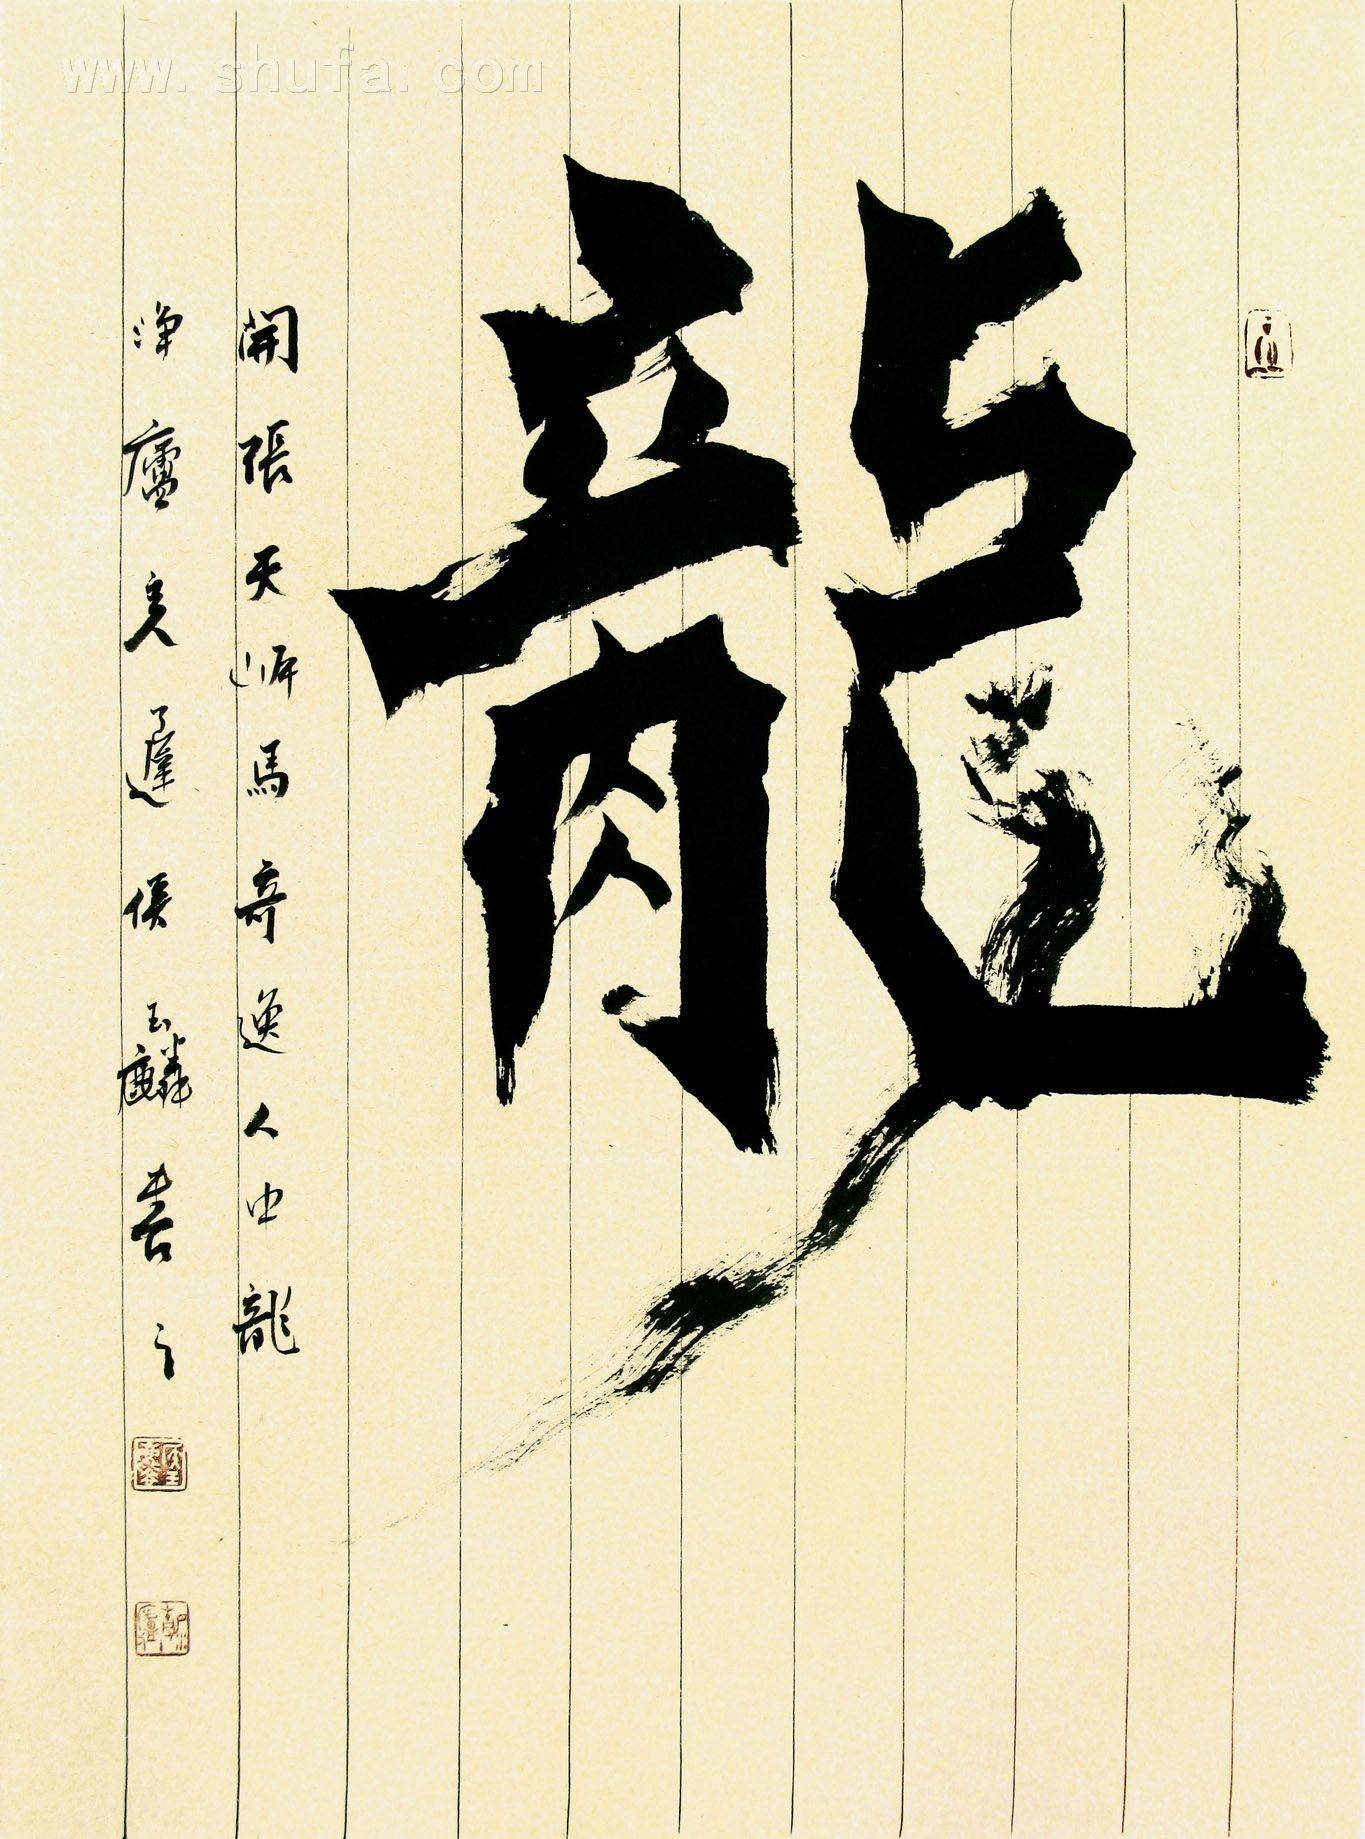 www.shufa.com
龍
開張天岸馬奇逸人中龍
淨廬矣遲侯玉麟書之